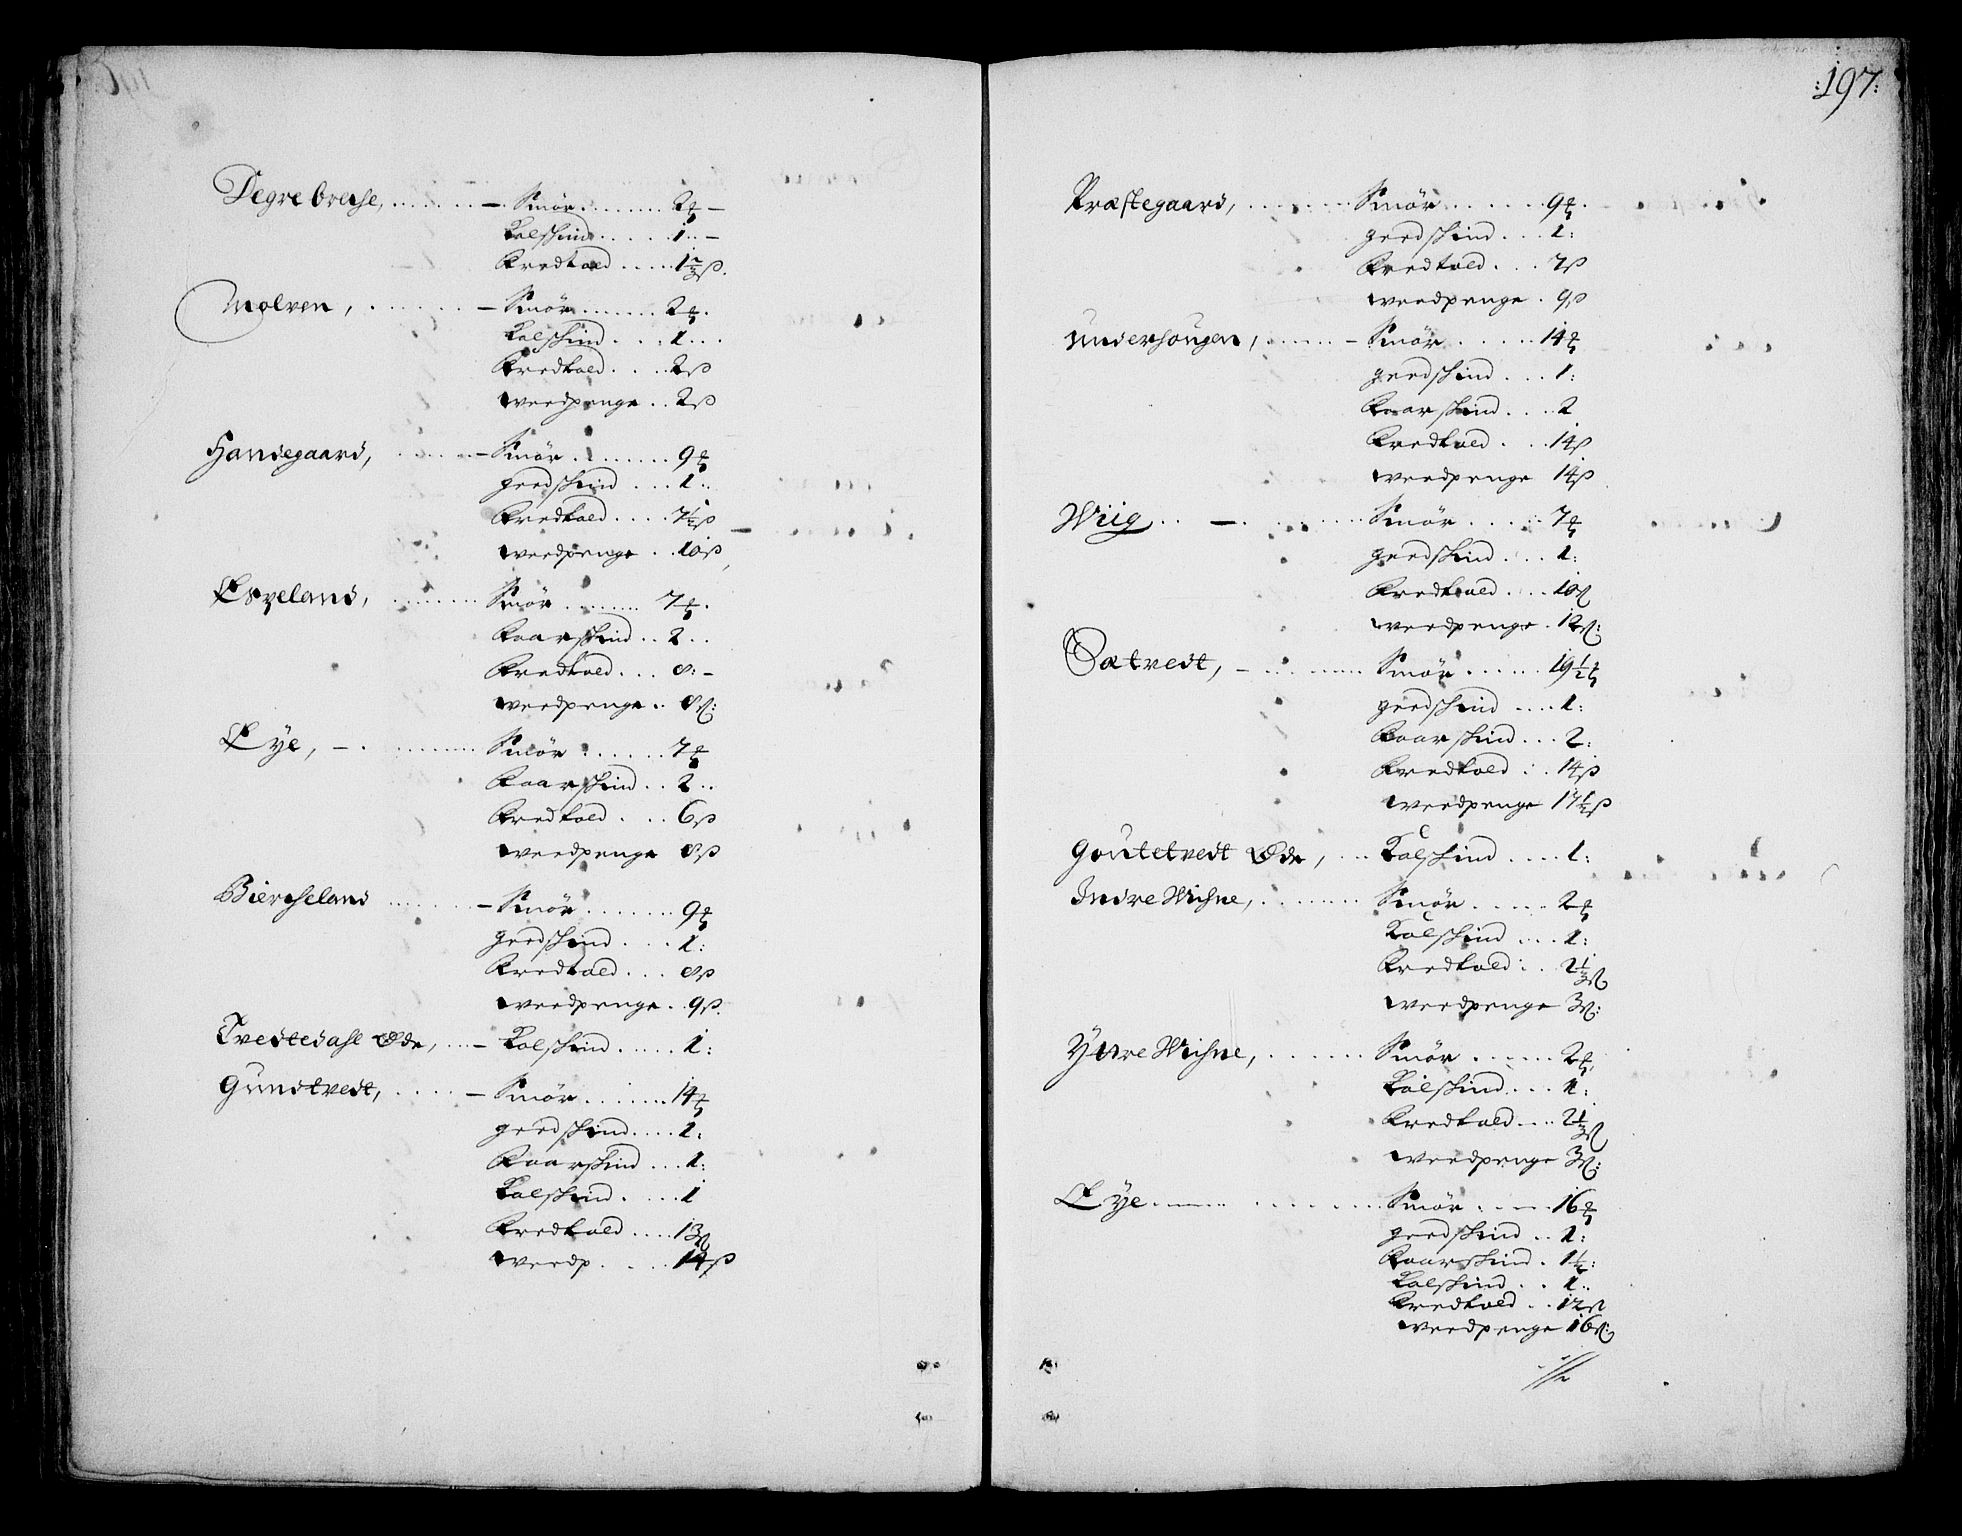 :197:
Degrebrecke, ........ – Smør ........ 2 ℔ –
Kalfskind ..... 1 .. –
Kredtold ..... 1 2/3 ß.
Molven, ........ – Smør ....... 2 ℔.
Kalfskind .... 1 ...
Kredtold .... 2 ß
weedpenge .. 2 ß
Handegaard, ...... – Smør ........ 9 ℔
geedskind .... 1 ..
Kredtold .... 7 1/2 ß
weedpenge .. 10 ß
Espeland, ........ Smør ........ 7 ℔.
Kaarskind .. 2 ..
Kredtold ... 8: –
weedpenge .. 8 ß:
Eye, – ........ Smør ...... 7 ℔
Kaarskind .. 2 ..
Kredtold .... 6 ß
weedpenge 8 ß
Biercheland ....... – Smør ....... 9 ℔
geedskind .... 1:
Kredtold .... 8 ß
weedpenge .. 9 ß.
Tvedtedahl Øde, ... – Kalfskind ..... 1:
Gundtvedt, ..... – Smør ....... 14 ℔
geedskind .... 1:
Kaarskind ... 1:
Kalfskind ..... 1
Kredtold .... 13 ß
weedp. .... 14 ß
Præstegaard, ........ Smør ....... 9 ℔.
geedskind ... 1:
Kredtold .... 7 ß
weedpenge . 9 ß
Underhougen, ...... – Smør ..... 14 ℔
geedskind ... 1:
Kaarskind ... 2
Kredtold .... 14 ß
weedpenge 14 ß
Wiig .. – ........ Smør ..... 7 ℔
geedskind ... 1:
Kredtold .... 10 ß
weedpenge . 12 ß:
Sætvedt, – ........ Smør ..... 19 1/2 ℔
geedskind .... 1:
Kaarskind ... 2:
Kredtold ... 14 ß
weedpenge 17 1/2 ß
Goutetvedt Øde, ... Kalfskind .... 1:
Indre Wisne, ........ Smør ..... 2 ℔
Kalfskind ... 1:
Kredtold ... 2 1/3 ß
weedpenge 3 ß:
Yttre Wisne, ....... Smør ...... 2 ℔
Kalfskind ... 1:
Kredtold .... 2 1/3 ß
weedpenge 3 ß:
Eye ............ Smør ..... 16 ℔
geedskind .. 1:
Kaarskind . 1 1/2:
Kalfskind .. 1:
Kredtold .. 12 ß
weedpenge 16 ß: